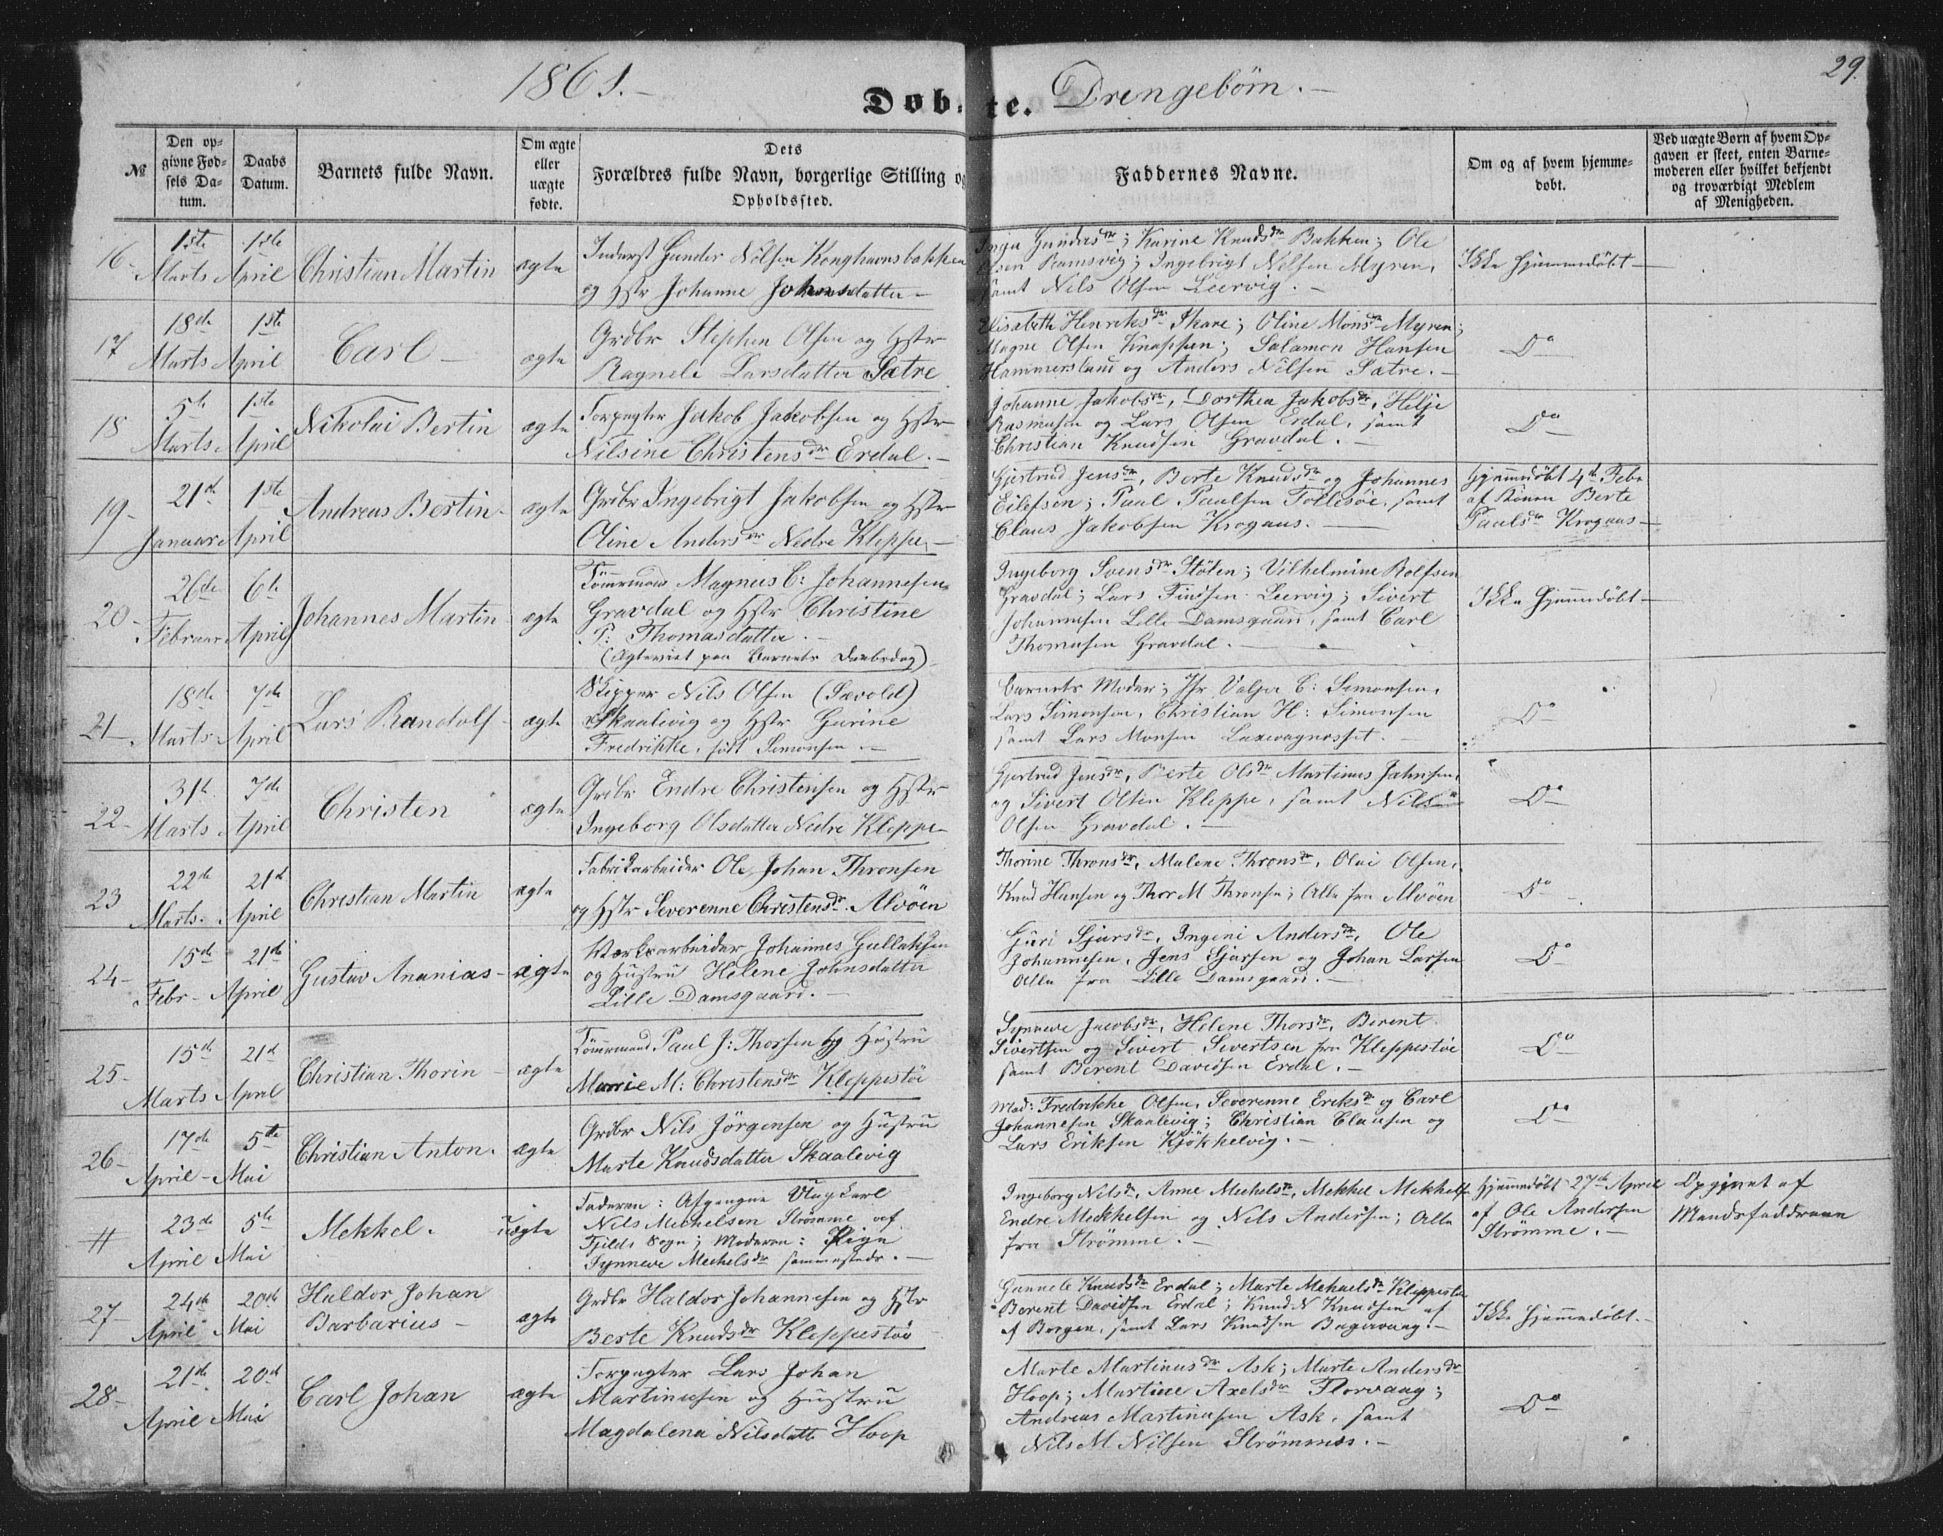 1861.-
Døbte. Drengebørn.-
29.
№
Den opgivne Fødsels Datum.
Daabs Datum.
Barnets fulde Navn.
Om ægte eller uægte fødte.
Dets Forældres fulde Navn, borgerlige Stilling og Opholdssted.
Faddernes Navne.
Om og af hvem hjemmedøbt.
Ved uægte Børn af hvem Opgaven er skeet, enten Barnemoderen eller hvilket bekjendt og troværdigt Medlem af Menigheden.
16- 1ste Marts 1ste April Christian Martin ægte
Inderst Gunder Nilsen Konghavnsbakken
og Hstr Johanne Johnsdatter-
Gundersdr; Karine Knudsdr Bakken; Ole
Olsen Ramsvig; Ingebrigt Nilsen Myren,
samt Nils Olsen Leervig.-
Ikke hjemmedøbt-
17 18de Marts 1ste April Carl- ægte
Grdbr Stephen Olsen og Hstr
Ragnele Larsdatter Sætre
Elisabeth Henriksdr Skare; Oline Monsdr Myren;
Magne Olsen Knappen; Salamon Hansen
Hammersland og Anders Nilsen Sætre.-
Do-
18 5te Marts 1ste April Nikolai Bertin ægte
Forpagter Jakob Jakobsen og Hstr
Nilsine Christensdr Erdal.-
Johanne Jakobsdr, Dorthea Jakobsdr, Helje
Rasmusen og Lars Olsen Erdal, samt
Christian Knudsen Gravdal.-
Do-
19- 21de Januar 1ste April Andreas Bertin- ægte
Grdbr Ingebrigt Jakobsen og Hstr
Oline Andersdr Nedre Kleppe.-
Gjertrud Jensdr, Berte Knudsdr og Johannes
Eilefsen; Paul Paulsen Follesøe, samt
Claus Jakobsen Krogaas.-
Hjemmedøbt 4de Febr
af Konen Berte
Paulsdr Krogaas-
20- 26de Februar 6te April Johannes Martin- ægte
Tømrmand Magnus C: Johannesen
Gravdal og Hstr Christine
P: Thomasdatter.-
(Ægteviet paa Barnets Daabsdag)
Ingeborg Svensdr Støten; Vilhelmine Rolfsen
Gravdal; Lars Finsen Leervig; Sivert
Johannesen Lille Damsgaard, samt Carl
Thomasen Gravdal.-
Ikke hjemmedøbt-
21- 18de Marts 7de April Lars Randolf- ægte
Skipper Nils Olsen (Sævold)
Skaalevig og Hstr Gurine
Fredrikke, født Simonsen.-
Barnets Moder; Jfr Valga C: Simonsen,
Lars Simonsen, Christian H: Simonsen
samt Lars Monsen Laxevagnæsset.-
Do-
22- 31te Marts 7de April Christen ægte
Grdbr Endre Christensen og Hstr
Ingeborg Olsdatter Nedre Kleppe-
Gjertrud Jensdr, Berte Olsdr Martinus Jahnsen,
og Sivert Olsen Kleppe, samt Nils
Olsen Gravdal.-
Do-
23 22de Marts. 21de April Christian Martin ægte
Fabrikarbeider Ole Johan Thronsen
og Hstr Severenne Christensdr Alvøen
Thorine Thronsdr, Malene Thronsdr, Olai Olsen,
Knud Hansen og Thor M Thronsen; Alle fra Alvøen
Do-
24- 15de Febr- 21de April Gustav Ananias- ægte
Værksarbeider Johannes Gullaksen
og Hustru Helene Johnsdatter
Lille Damsgaard.-
Guri Sjursdr, Ingeni Andersdr, Ole
Johannesen, Jens Sjursen og Johan Larsen
Alle fra Lille Damsgaard.-
Do-
25- 15de Marts 21de April Christian Thorin- ægte
Tømrmand Paul J: Thorsen og Hustru
Marie M: Christensdr Kleppestøe
Synneve Jacobsdr, Helene Thorsdr, Berent
Sivertsen og Sivert Sivertsen fra Kleppestøe
samt Berent Davidsen Erdal.-
Do-
26- 17de April- 5te Mai Christian Anton. ægte
Grdbr Nils Jörgensen og Hustru
Marte Knudsdatter Skaalevig
Mad: Fredrikke Olsen, Severenne Eriksdr og Carl
Johannesen Skaalevig; Christian Clausen og
Lars Eriksen Kjökkelvig.-
Do-
# 23de April 5te Mai Mekkel. uægte
Faderen: Afgangne Ungkarl
Nils Mechelsen Strømme af
Fjelds Sogn; Moderen: Pige
Synneve Mechelsdr sammesteds.-
Ingeborg Nilsdr, Anne Mechelsdr, Mekkel Mekkelsen
Endre Mekkelsen og Nils Andersen; Alle
fra Strømme.-
Hjemmedøbt 27de April
af Ole Andersen
Strømme.-
Opgivet af
Mandsfadderne
27- 24de April 20de Mai Haldor Johan
Barbarius- ægte
Grdbr Haldor Johannesen og Hstr
Berte Knudsdr Kleppestøe-
Gunnele Knudsdr Erdal; Marte Mehaelsdr Kleppestøe
Berent Davidsen Erdal; Knud N Knudsen af
af Bergen, samt Lars Knudsen Bagervaag.-
Ikke hjemmedøbt.-
28- 21de April 20de Mai Carl Johan ægte
Forpagter Lars Johan
Martinusen og Hustru
Magdalena Nilsdatter Hoop
Marte Martinusdr Ask; Marte Andersdr
Hoop; Martine Axelsdr Florvaag;
Andreas Martinusen Ask, samt
Nils M Nilsen Strømnes.-
Do-